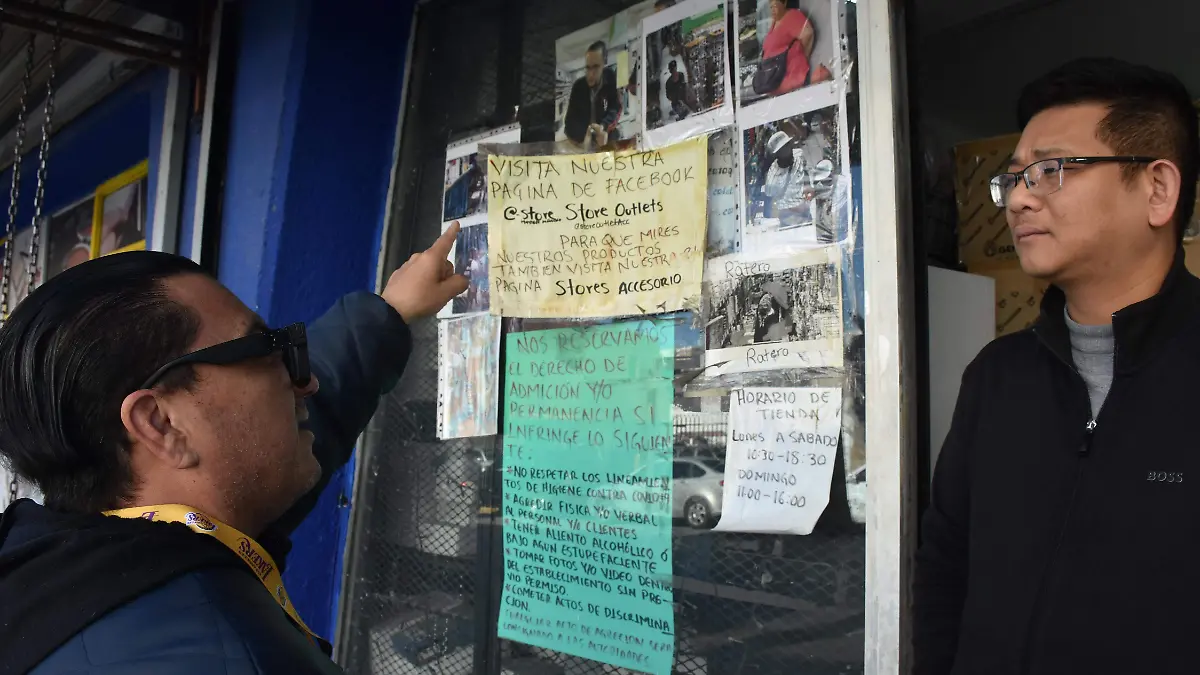 VISITA NUESTRA
PAGINA DE FACEBOOK
@store Store Outlets
PARA QUE MIRES
NUESTROS PRODUCTOS
TAMBIEN VISITA NUESTRA
PAGINA Stores ACCESORIO
Ratero
Ratero
NOS RESERVAMOS
EL DERECHO DE
ADMICIÓN Y/O
PERMANENCIA SI
INFRINGE LO SIGUIEN
TE.
*NO RESPETAR LOS LINEAMIEN
TOS DE HIGIENE CONTRA COVID19
*AGREDIR FISICA Y/O VERBAL
AL PERSONAL Y/O CLIENTES
*TENER ALIENTO ALCOHÓLICO Ó
BAJO AGUN ESTUPEFACIENTE
*TOMAR FOTOS Y/O VIDEO DENTRO
DEL ESTABLECIMIENTO SIN PRE-
VIO PERMISO.
*COMETER ACTOS DE DISCRIMINA
CION.
CUALQUIER ACTO DE AGRECION SERA
CONSIGNADO A LAS AUTORIDADES
HORARIO DE
TIENDA
LUNES A SABADO
10:30-18:30
DOMINGO
11:00-16:00
BOSS
LAKERS